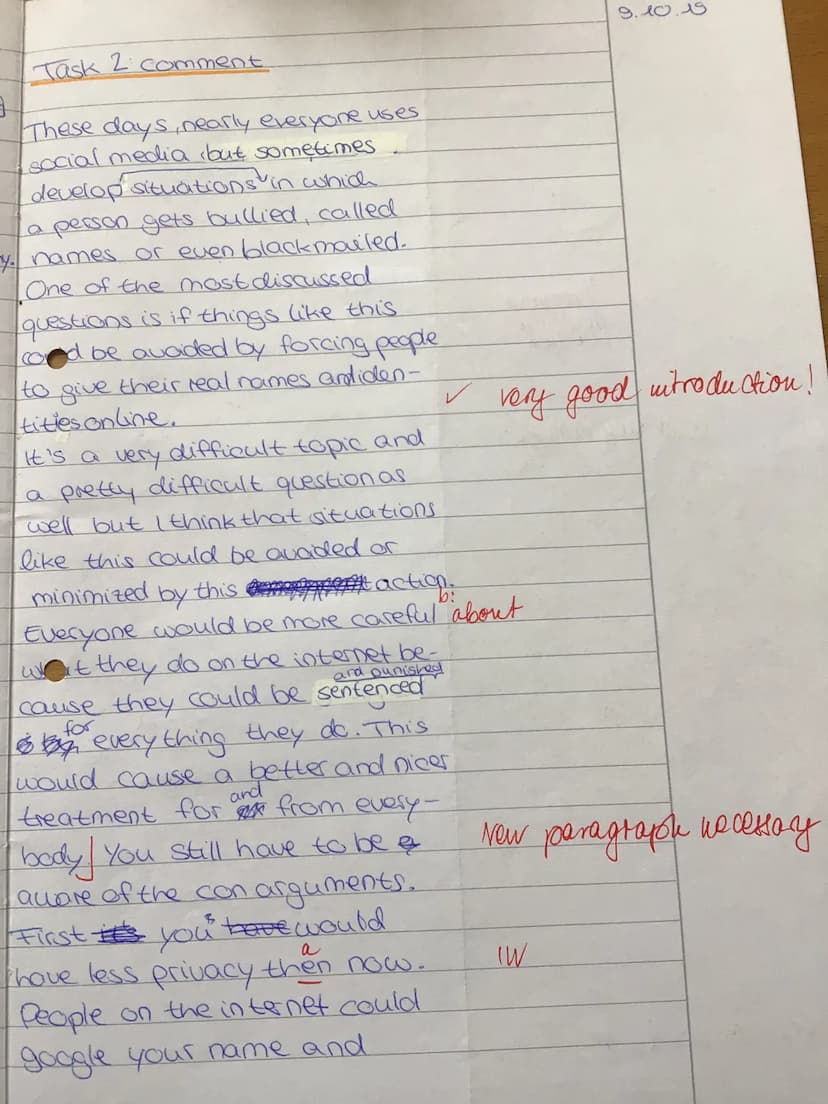 9.10.19
Task 2: comment
These days, nearly everyone uses
social media, but sometimes
develop situations in which
a person gets bullied, called
names or even blackmailed.
One of the most discussed
questions is if things like this
be avoided by forcing people
to give their real names and iden-
tities online.
✓ very good introduction!
It's a very difficult topic and
a pretty difficult question as
well but I think that situations
like this could be avoided or
minimized by this action.
Everyone would be more careful b: about
what they do on the internet be-
and punished
cause they could be sentenced
for everything they do. This
would cause a better and nicer
treatment for and from every-
body] You still have to be
New paragraph necessary
aware of the con arguments.
First you would
have less privacy then now.
a
IW
People on the internet could
google your name and